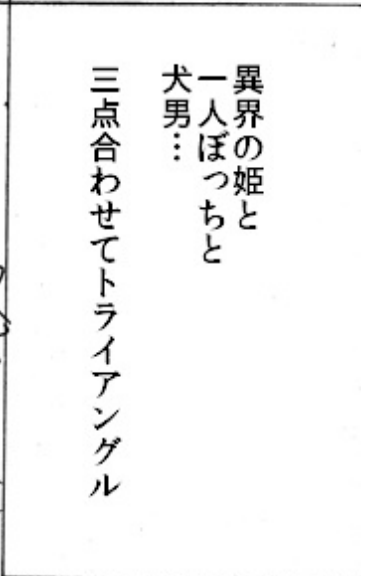 異界の姫と
一人ぼっちと
犬男…
三点合わせてトライアングル